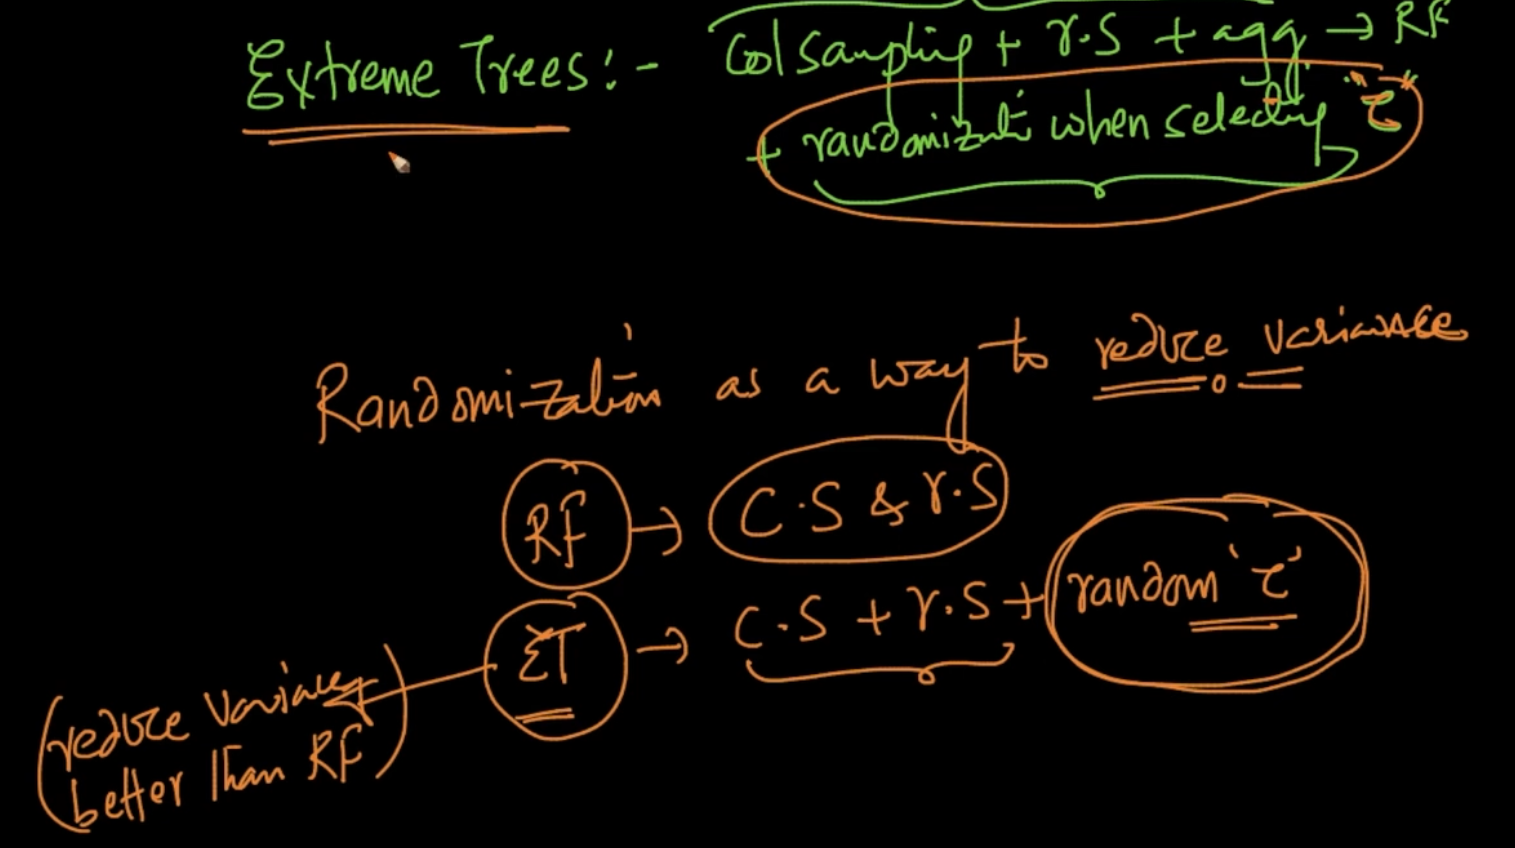 Extreme Trees:- Col sampling + r.S + agg → RF
+ randomization when selecting "τ"
Randomization as a way to reduce variance
RF → C.S & r.S
ET → C.S + r.S + random 'τ'
(reduce variance
better than RF)